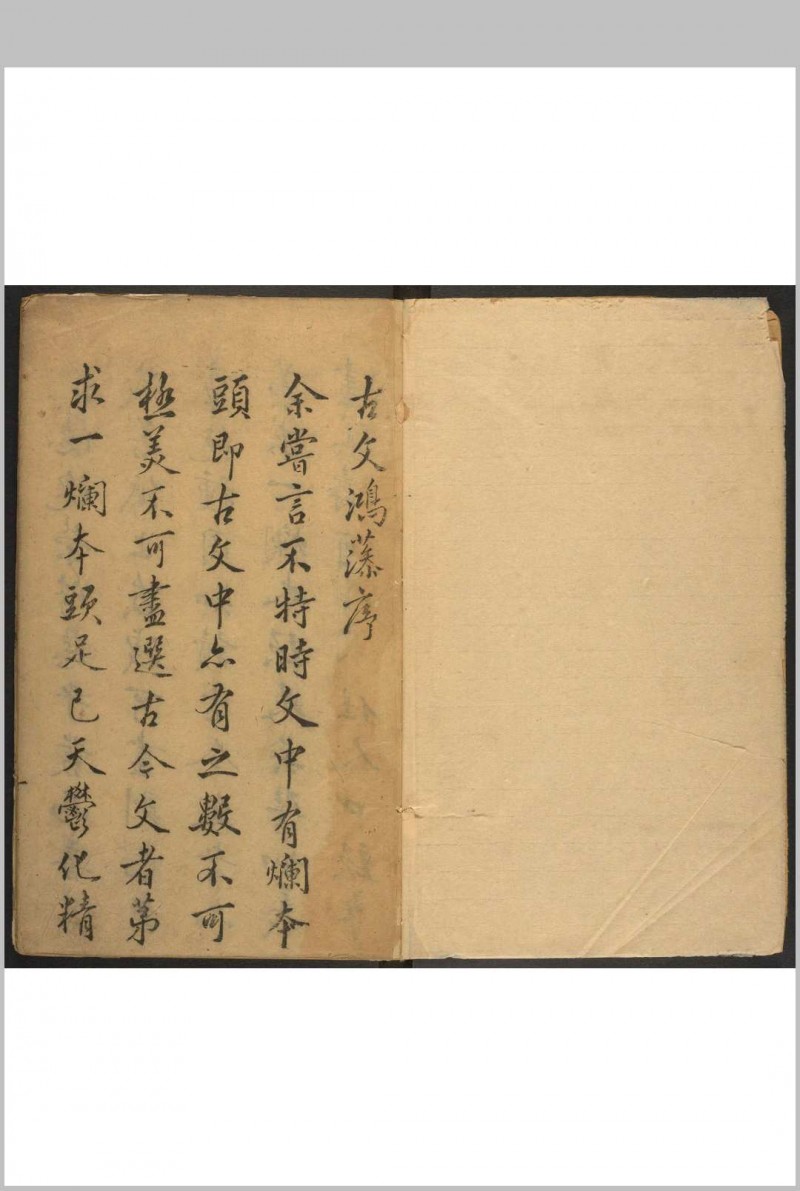 古文鴻藻序
余嘗言不特時文中有爛本
頭即古文中亦有之數不可
極美不可盡選古今文者第
求一爛本頭足已天鬱化精